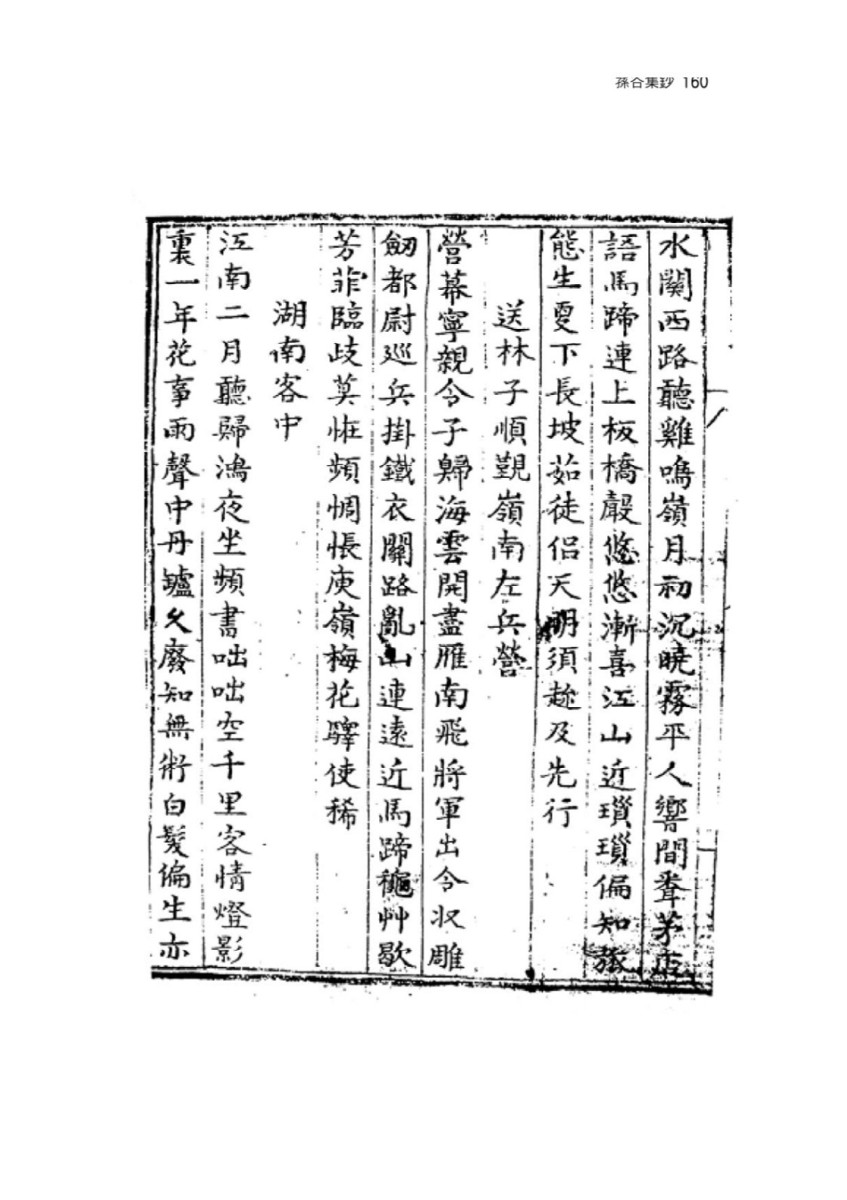 孫谷集鈔 160
水關西路聽雞鳴嶺月初沉曉霧平人響間聾茅店
語馬蹄連上板橋聲悠悠漸喜江山近瑣瑣偏知旅
態生更下長坡茹徒侶天明須趂及先行
送林子順覲嶺南左兵營
營幕寧親令子歸海雲開盡雁南飛將軍出令収雕
劒都尉巡兵掛鐵衣關路亂山連遠近馬蹄穐艸歇
芳菲臨歧莫恠頻惆悵庾嶺梅花驛使稀
湖南客中
江南二月聽歸鴻夜坐頻書咄咄空千里客情燈影
裏一年花事雨聲中丹爐久廢知無術白髮偏生亦